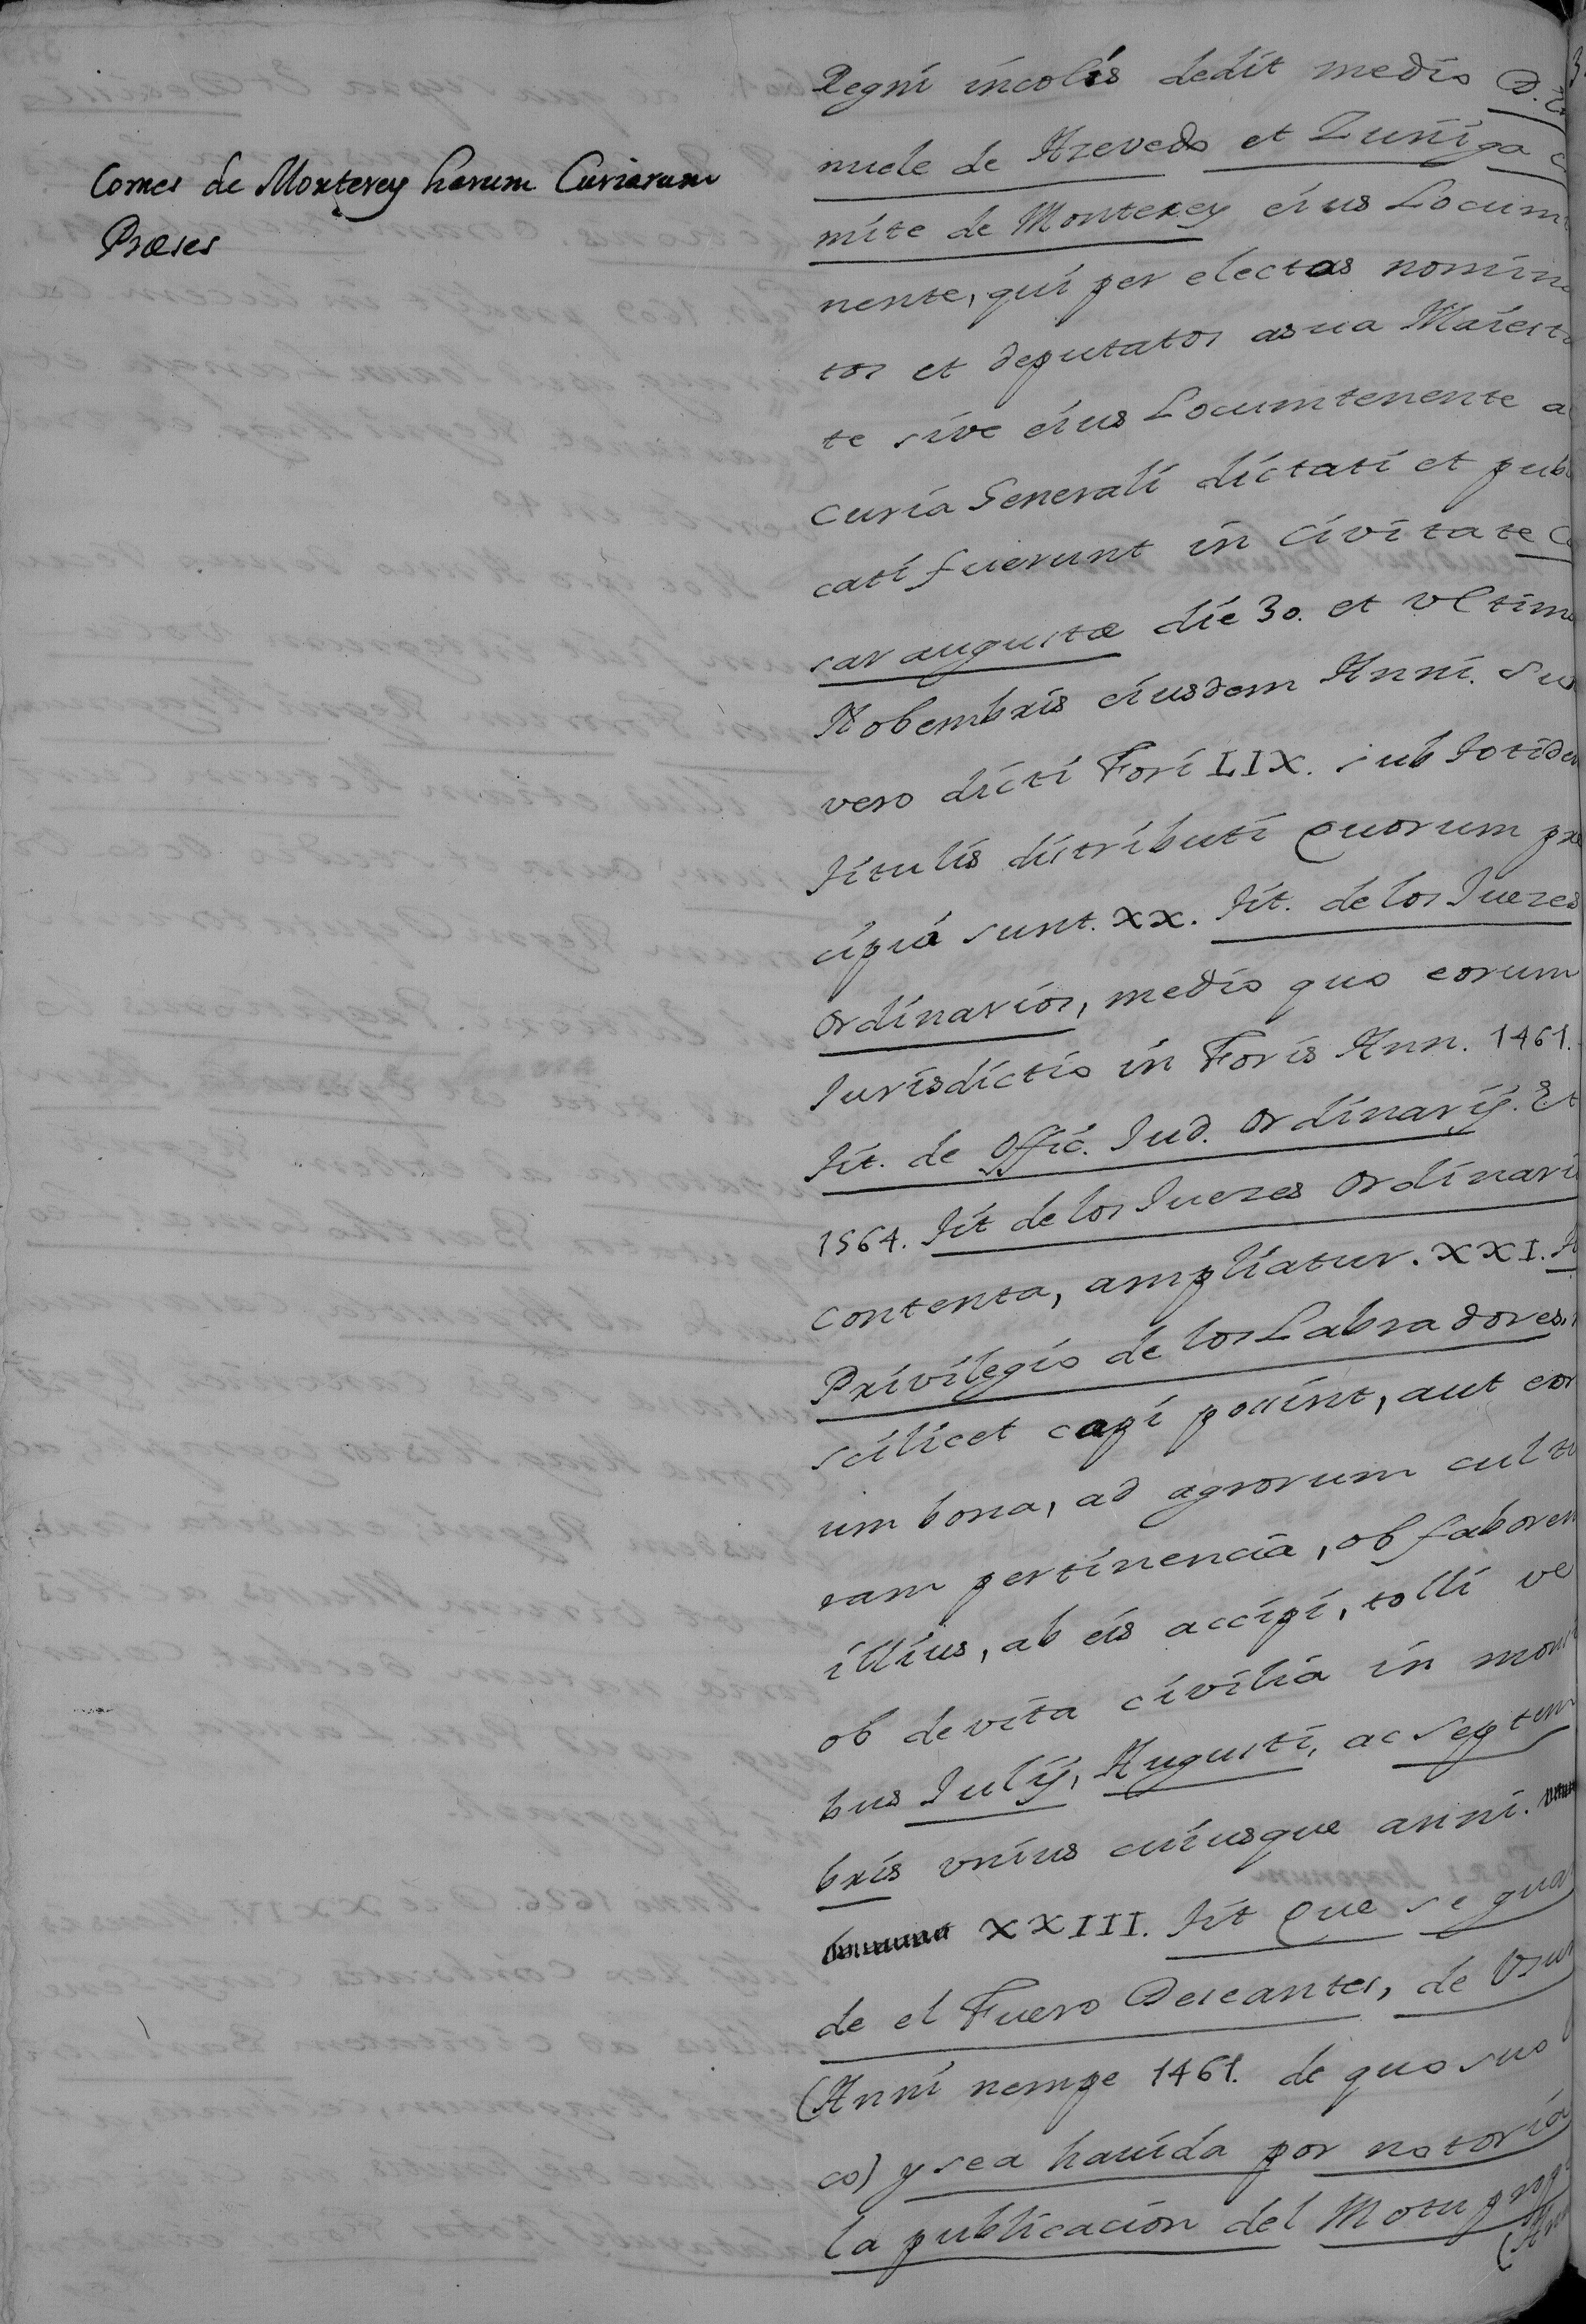 Comes de Monterey harum Curiarum
Præses
Regni incolis dedit medio D.
nuele de Azevedo et Zuñiga
mite de Monterey eius Locum
nente, qui per electos nomina
tos et deputatos a sua Maiesta
te sive eius Locumtenente a
curia Generali dictati et publ
cati fuerunt in civitate
sar augustæ die 30. et vltima
Nobembris eiusdem Anni. Su
vero dicti Fori LIX. sub totidem
titulis distributi quorum præ
cipui sunt. XX. Tit. de los Juezes
Ordinarios, medio quo eorum
Jurisdictio in Foris Ann. 1461.
Tit. de Offic. Jud. Ordinarij. Et
1564. Tit de los Juezes Ordinari
contenta, ampliatur. XXI.
Privilegio de los Labradores,
scilicet capi possint, aut eor
um bona, ad agrorum cultu
ram pertinencia, ob faborem
illius, ab eis accipi, tolli ve
ob devita civilia in mensi
bus Julij, Augusti, ac Septem
bris vnius cuiusque anni.
XXIII. Tit Que se guar
de el Fuero Deseantes, de Usur
(Anni nempe 1461. de quo suo lo
co) y sea hauida por notoria
la publicacion del Motu prop